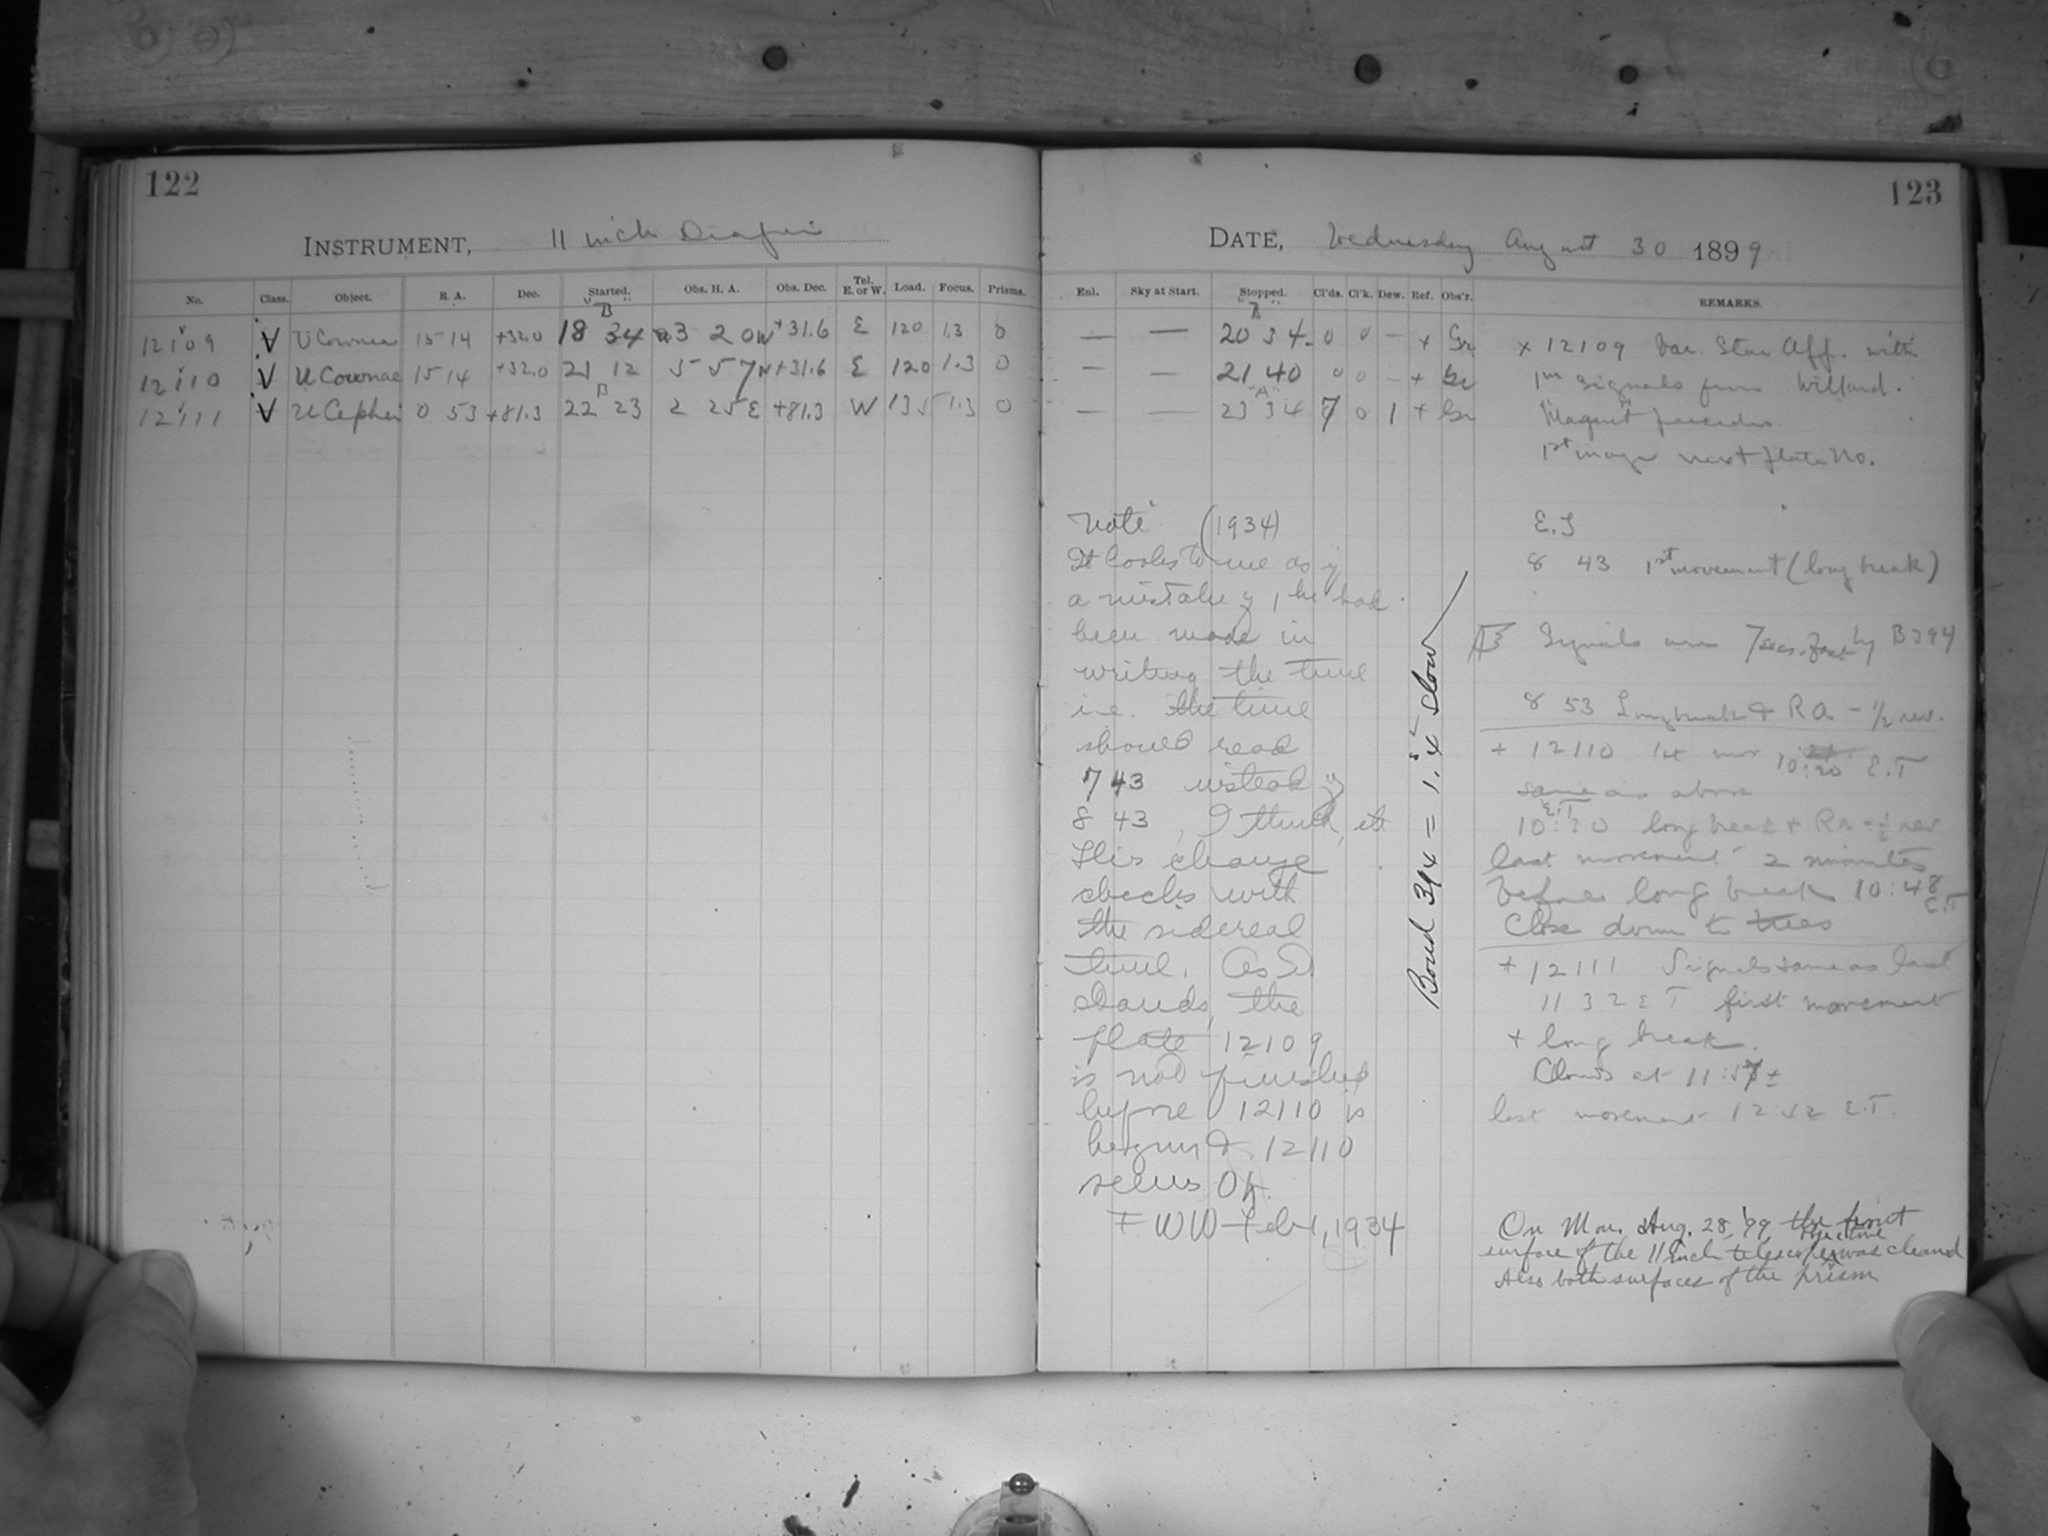 122
INSTRUMENT, 11 inch Draper
No. Class. Object. R A. Dec. Started. Obs. H. A. Obs. Dec. Tel. E. or W. Load. Focus. Prisms.
B
12109 V U Coronae 15 14 +32.0 18 34 3 20 W +31.6 E 120 1.3 0
12110 V U Coronae 15 14 +32.0 21 12 5 57 W +31.6 E 120 1.3 0
B
12111 V U Cephei 0 53 +81.3 22 23 2 25 E +81.3 W 135 1.3 0
123
DATE, Wednesday August 30 1899
Eol. Sky at Start. Stopped. Cl'ds. Cl'k. Dew. Ref. Obs'r. REMARKS.
— — 20 34 0 0 – + Gr x 12109 Var. Star App. with
— — 21 40 0 0 – + Gr 1m signals from Willard.
A
— — 23 34 7 0 1 + Gr Magnet
1st image next plate No.
Note (1934)
It looks to me as if
a mistake of 1 hr had
been made in
writing the time
i.e. the time
should read
7 43 instead of
8 43, I think, etc
This change
checks with
the sidereal
time. As it
stands, the
plate 12109
is not finished
before 12110 is
begun & 12110
seems OK.
FWW–Feb 1, 1934
Bond 394 = 1.4 slow
E.T
8 43 1st movement (long break)
Signals are 7 secs. fast by B394
8 53 Long break & R a – 1/2 rev.
+ 12110 1st mov 10:20 E.T
same as above
E.T
10:30 long break + Ra – 1/2 rev
last movement 2 minutes
before long break 10:48
E.T
Close down to trees
+ 12111 Signals same as last
11 32 E T first movement
+ long break.
Clouds at 11:57 ±
last movement 12:42 E.T.
On Mon. Aug. 28, '99, the front
objective
surface of the 11 inch telescope was cleaned
Also both surfaces of the prism